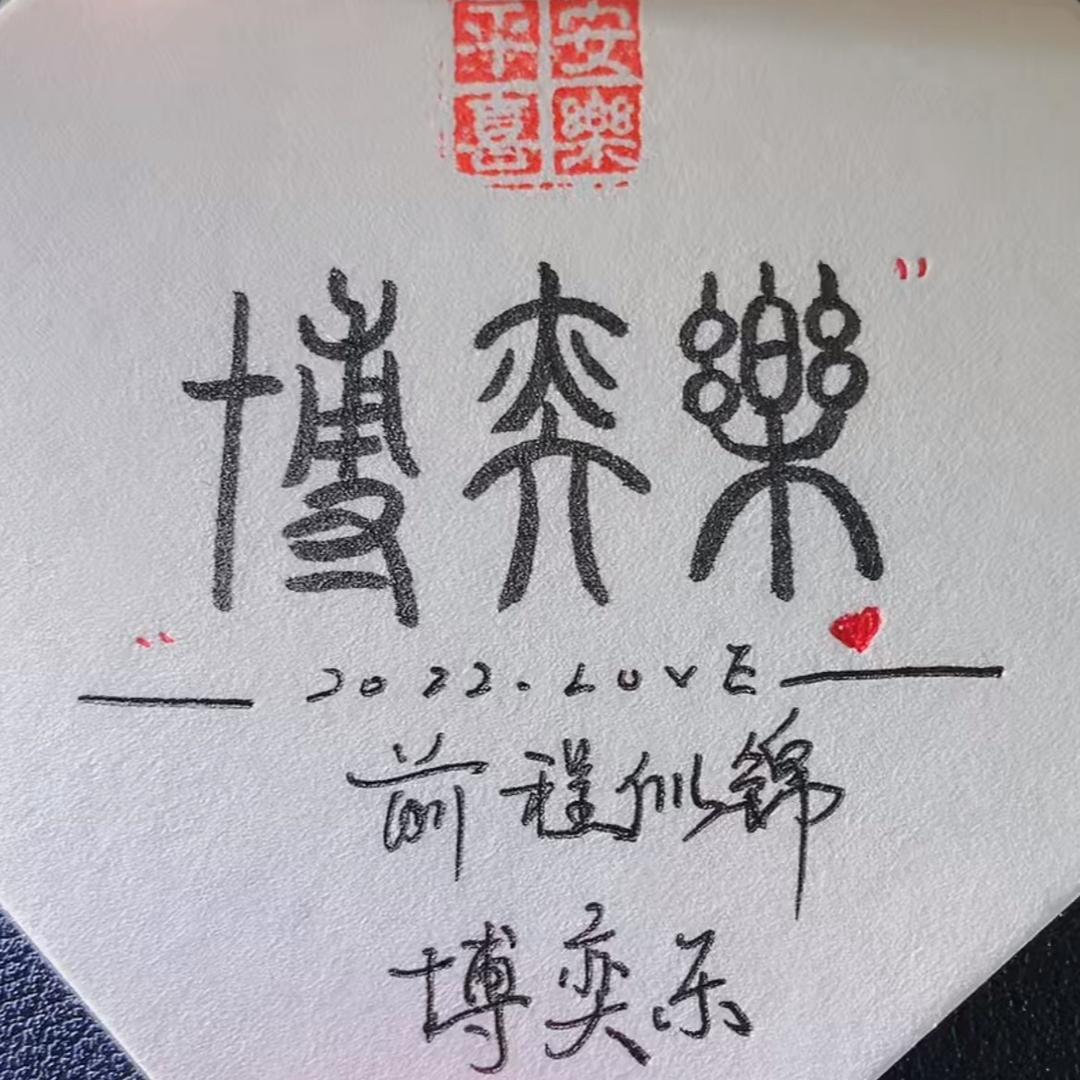 平安
喜樂
博奕樂
2022.LOVE
前程似錦
博奕乐